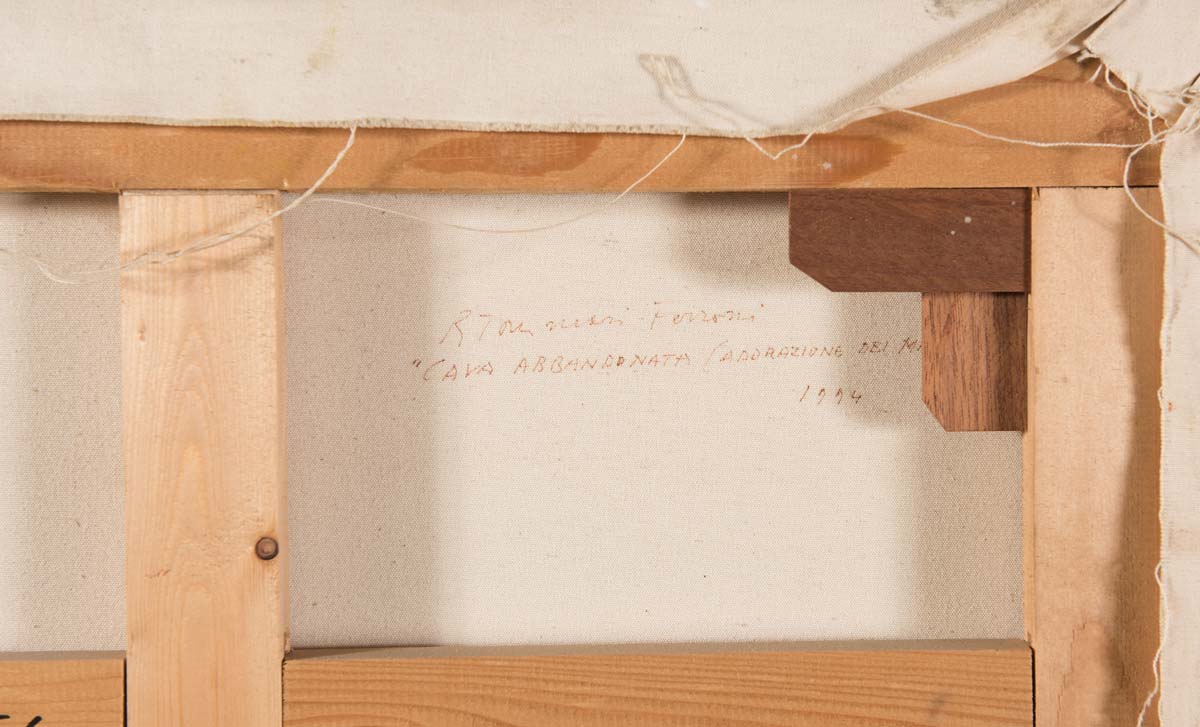 R Tommasi Ferroni
"CAVA ABBANDONATA (ADORAZIONE DEI MA
1994